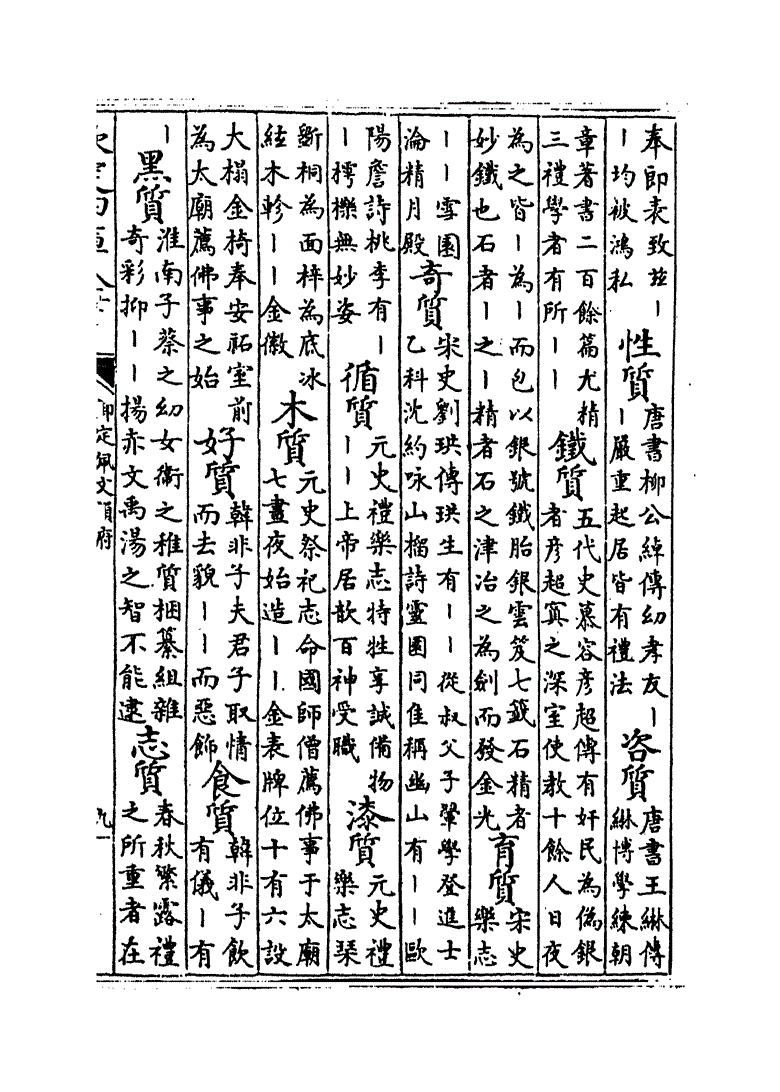 奉即表致茲｜
｜均被鴻私
性質
唐書柳公綽傳幼孝友｜
｜嚴重起居皆有禮法
咨質
唐書王綝傳
綝博學練朝
章著書二百餘篇尤精
三禮學者有所｜｜
鐵質
五代史慕容彥超傳有奸民為偽銀
者彥超寘之深室使教十餘人日夜
為之皆｜為｜而包以銀號鐵胎銀雲笈七籤石精者
妙鐵也石者｜之｜精者石之津冶之為劍而發金光
育質
宋史
樂志
｜｜雪圜
淪精月殿
奇質
宋史劉珙傳珙生有｜｜從叔父子翬學登進士
乙科沈約咏山榴詩靈園同佳稱幽山有｜｜歐
陽詹詩桃李有｜
｜樗櫟無妙姿
循質
元史禮樂志特牲享誠備物
｜｜上帝居歆百神受職
漆質
元史禮
樂志琴
斵桐為面梓為底冰
絃木軫｜｜金徽
木質
元史祭祀志命國師僧薦佛事于太廟
七晝夜始造｜｜金表牌位十有六設
大榻金椅奉安祏室前
為太廟薦佛事之始
好質
韓非子夫君子取情
而去貌｜｜而惡飾
食質
韓非子飲
有儀｜有
｜
黑質
淮南子蔡之幼女衛之稚質梱纂組雜
奇彩抑｜｜揚赤文禹湯之智不能逮
志質
春秋繁露禮
之所重者在
欽定四庫全書
御定佩文韻府